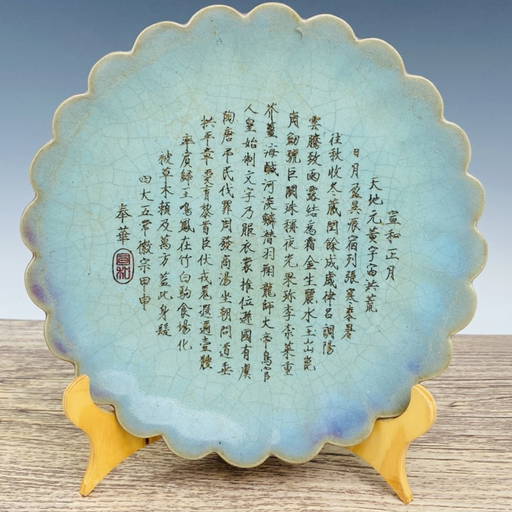 宣和正月
天地元黃宇宙洪荒
日月盈昃辰宿列張寒來暑
往秋收冬藏閏餘成歲律呂調陽
雲騰致雨露結為霜金生麗水玉出崑
岡劍號巨闕珠稱夜光果珍李柰菜重
芥薑海鹹河淡鱗潛羽翔龍師火帝鳥官
人皇始制文字乃服衣裳推位遜國有虞
陶唐弔民伐罪周發商湯坐朝問道垂
拱平章愛育黎首臣伏戎羌遐邇壹體
率賓歸王鳴鳳在竹白駒食場化
被草木賴及萬方蓋此身髮
四大五常 徽宗甲申
奉華
宣和